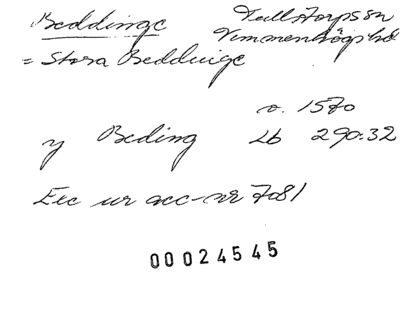 Beddinge Tullstorps sn
Vemmenhögs hd
= Stora Beddinge
o. 1570
y Beding Lb 290:32
Exc ur acc-nr 7081
00024545